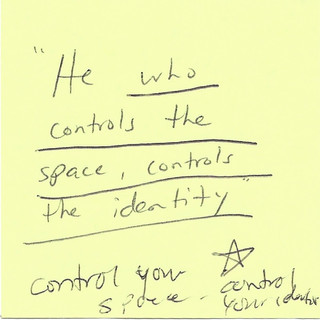 "He who
controls the
space, controls
the identity"
control your
space - control
your identity